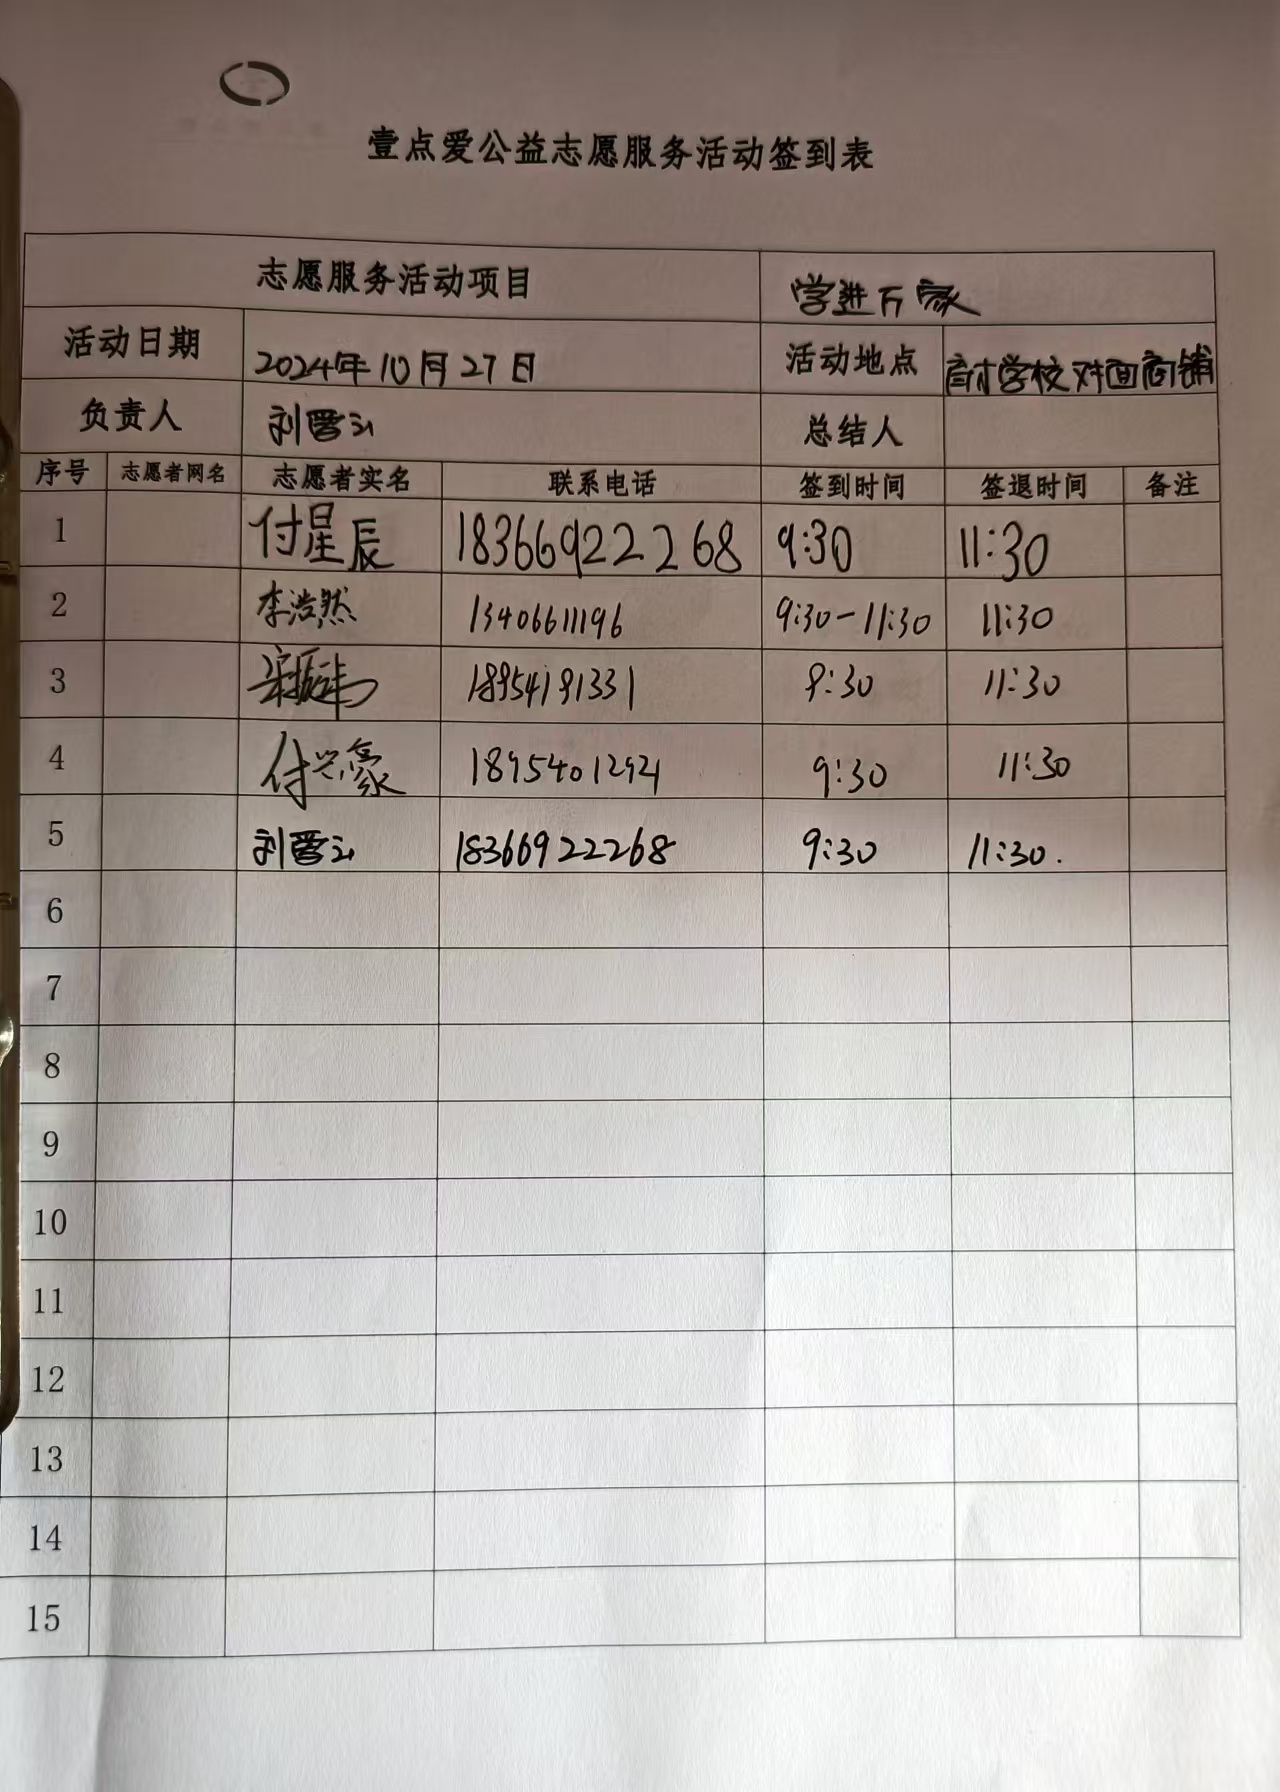 壹点爱公益志愿服务活动签到表
志愿服务活动项目 学进万家
活动日期 2024年10月27日 活动地点 育才学校对面商铺
负责人 刘 总结人
序号 志愿者网名 志愿者实名 联系电话 签到时间 签退时间 备注
1 付星辰 18366922268 9:30 11:30
2 李浩然 13406611196 9:30-11:30 11:30
3 :30 11:30
4 付兴豪 9:30 11:30
5 刘 18366922268 9:30 11:30.
6
7
8
9
10
11
12
13
14
15